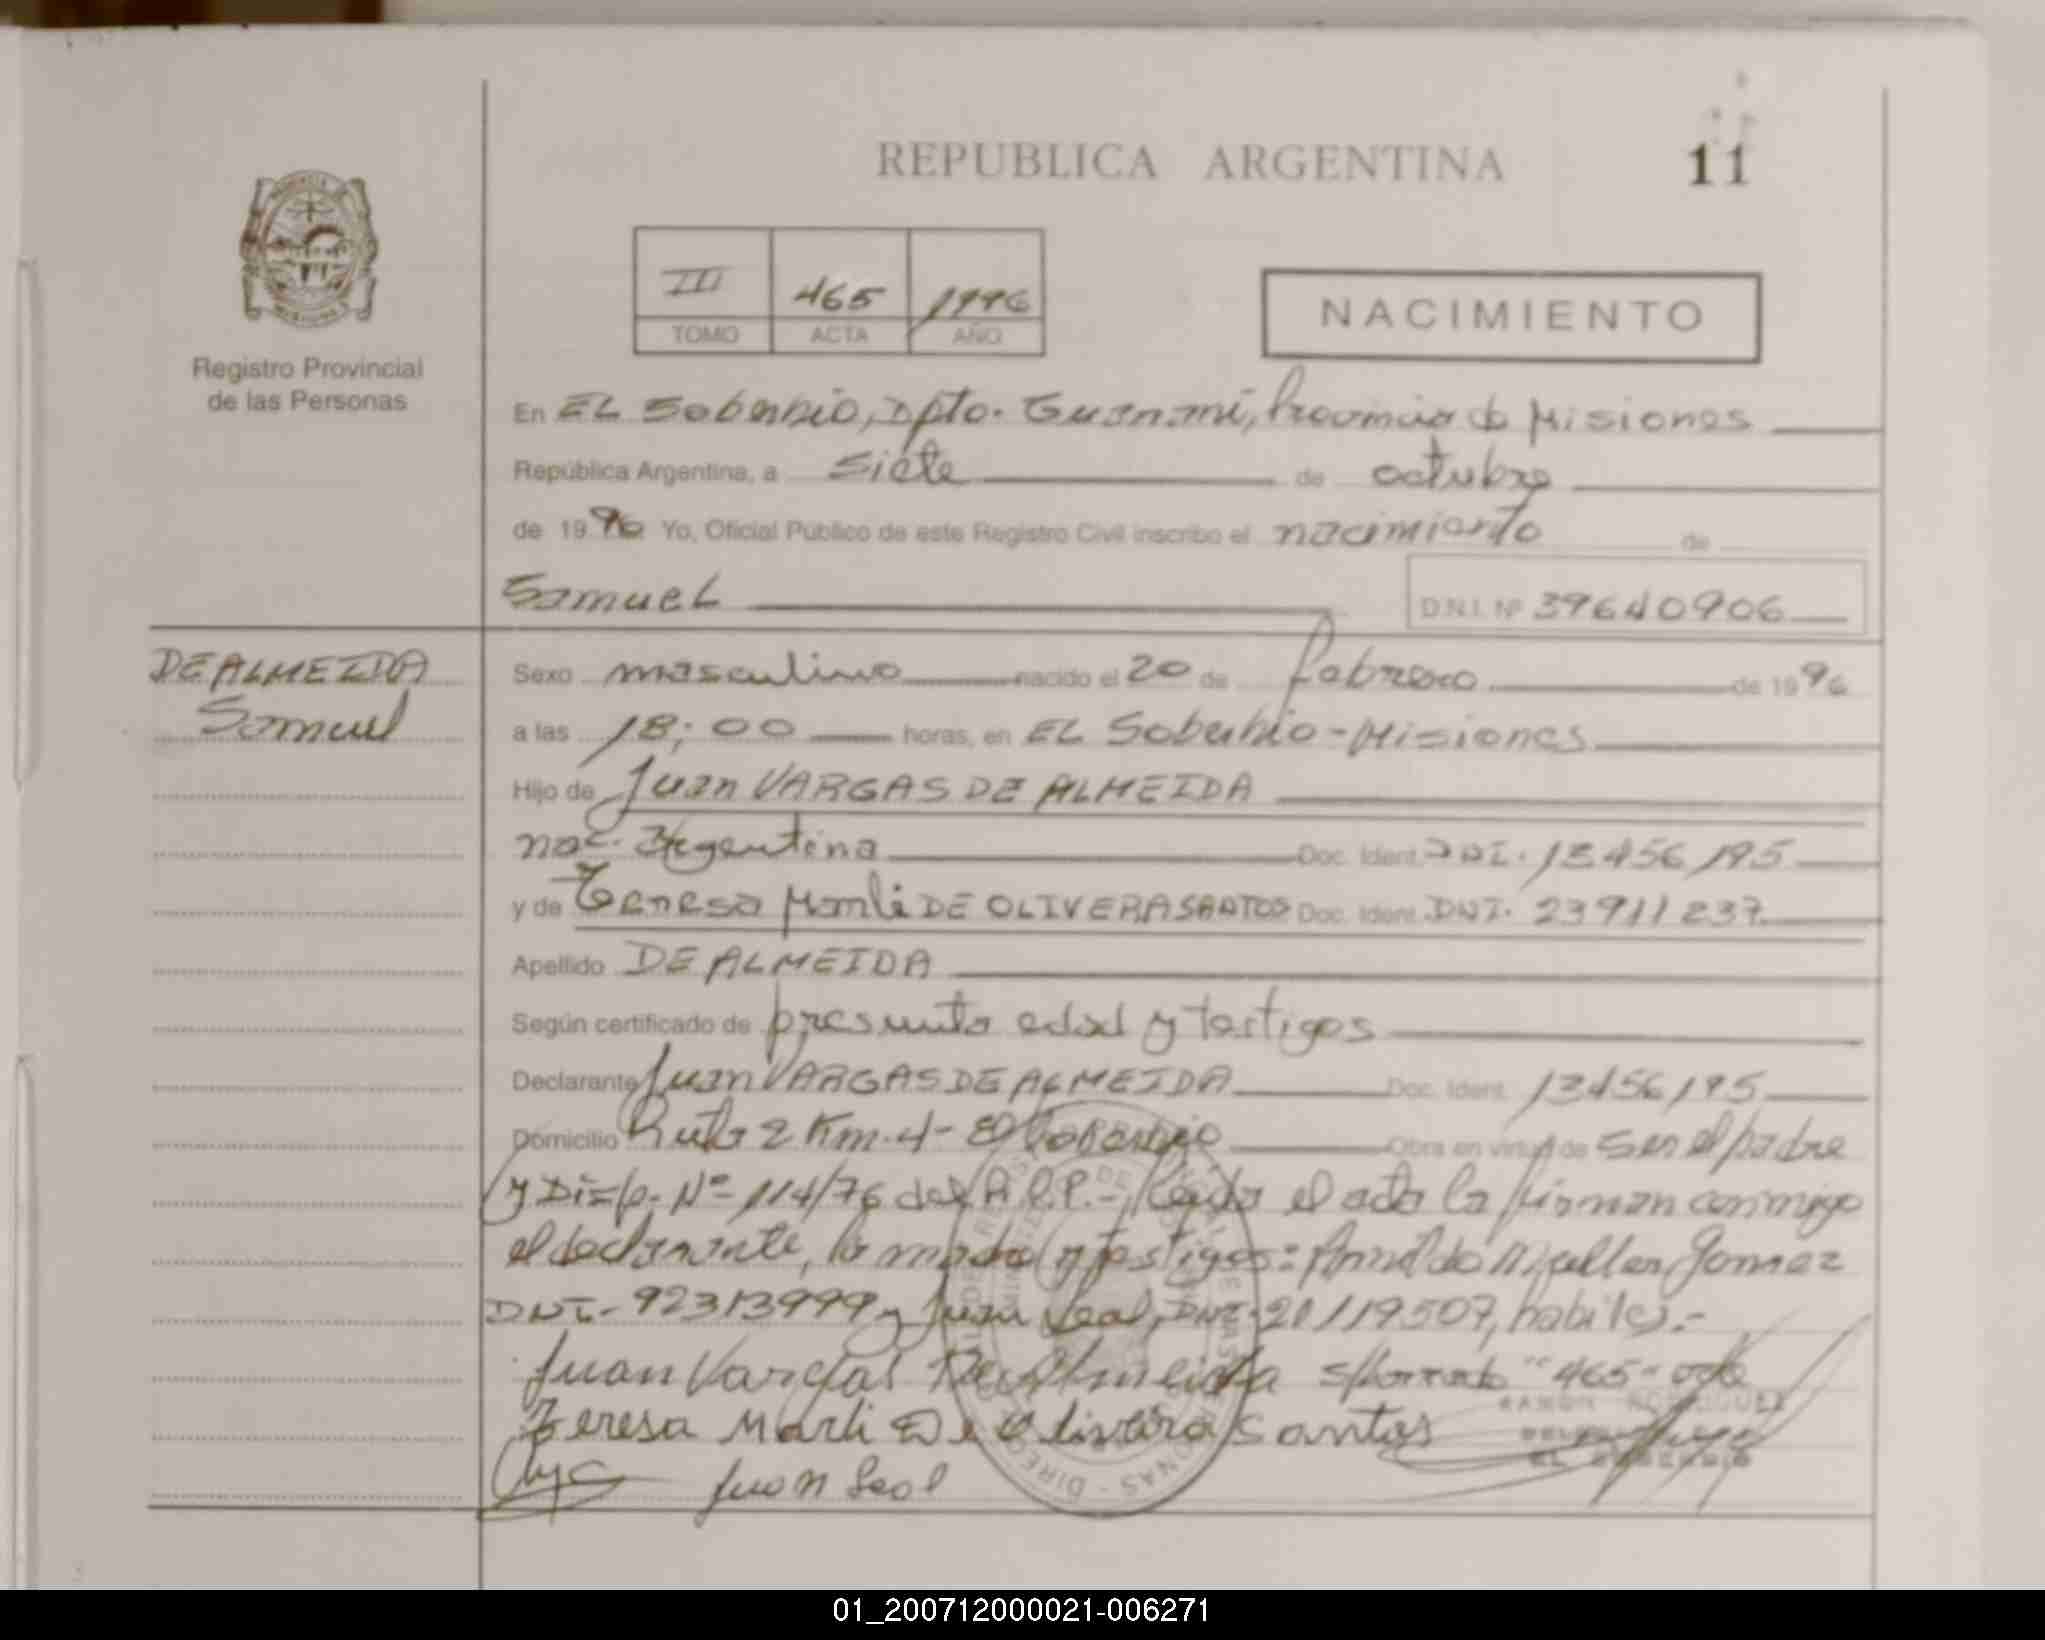 REPUBLICA ARGENTINA
11
III 465 1996
TOMO ACTA AÑO
NACIMIENTO
Registro Provincial
de las Personas
En EL Soberbio, Dpto. Guaraní, Provincia de Misiones
República Argentina, a siete de octubre
de 1996 Yo, Oficial Público de este Registro Civil inscribo el nacimiento de
Samuel
D.N.I. Nº 39640906
DE ALMEIDA
Samuel
Sexo masculino nacido el 20 de febrero de 1996
a las 18:00 horas, en EL Soberbio - Misiones
Hijo de Juan VARGAS DE ALMEIDA
nac. Argentina Doc. Ident. DNI. 13456195
y de Teresa Marli DE OLIVERA SANTOS Doc. Ident. DNI. 23911237
Apellido DE ALMEIDA
Según certificado de presunta edad y testigos
Declarante Juan VARGAS DE ALMEIDA Doc. Ident. 13456195
Domicilio Ruta 2 Km. 4 - El Soberbio Obra en virtud de ser el padre
y Disp. Nº 114/76 del R.P.P. - Leída el acta la firman conmigo
el declarante, la madre y testigos: Arnildo Muller Gomez
DNI - 92313999 y Juan Leal, DNI. 20119507, habiles.-
Juan Vargas De Almeida s/borrado "465" vale
Teresa Marli De Olivera Santos
Juan Leal
RAMON RODRIGUEZ
EL SOBERBIO
01_200712000021-006271